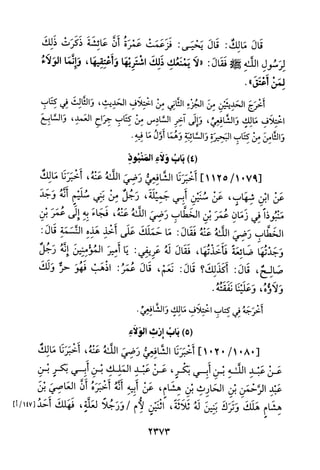 قَالَ مَالِكٌ: قَالَ يَحْيَـى: فَزَعَمَتْ عَمْرَةُ أَنَّ عَائِشَةَ ذَكَرَتْ ذَلِكَ
لِرَسُولِ اللَّـهِ ﷺ فَقَالَ: «لاَ يَمْنَعُكِ ذَلِكَ اشْتَرِيْهَا، وَأَعْتِقِيهَا، وَإِنَّمَا الوَلاَءُ
لِمَنْ أَعْتَقَ».
أَخْرَجَ الحَدِيثَيْنِ مِنَ الجُزْءِ الثَّانِي مِنَ اخْتِلاَفِ الحَدِيثِ، وَالثَّالِثَ فِي كِتَابِ
اخْتِلاَفِ مَالِكٍ وَالشَّافِعِيِّ، وَإِلَى آخِرِ السَّادِسِ مِنْ كِتَابِ جِرَاحِ العَمْدِ، وَالسَّابِعَ
وَالثَّامِنَ مِنْ كِتَابِ البَحِيرَةِ وَالسَّائِبَةِ وَهُمَا أَوَّلُ مَا فِيهِ.
(٤) بَابُ وَلاَءِ المَنْبُوذِ
[١١٢٥/١٠٧٩] أَخْبَرَنَا الشَّافِعِيُّ رَضِيَ اللَّـهُ عَنْهُ، أَخْبَرَنَا مَالِكٌ
عَنْ ابْنِ شِهَابٍ، عَنْ سُنَيْنٍ أَبِـي جَمِيْلَةَ، رَجُلٍ مِنْ بَنِي سُلَيْمٍ أَنَّهُ وَجَدَ
مَنْبُوذاً فِي زَمَانِ عُمَرَ بْنِ الخَطَّابِ رَضِيَ اللَّـهُ عَنْهُ، فَجَاءَ بِهِ إِلَى عُمَرَ بْنِ
الخَطَّابِ رَضِيَ اللَّـهُ عَنْهُ فَقَالَ: مَا حَمَلَكَ عَلَى أَخْذِ هَذِهِ النَّسَمَةِ قَالَ:
وَجَدْتُهَا ضَائِعَةً فَأَخَذْتُهَا، فَقَالَ لَهُ عَرِيفِي: يَا أَمِيرَ المُؤْمِنِينَ إِنَّهُ رَجُلٌ
صَالِـحٌ، قَالَ: أَكَذَلِكَ؟ قَالَ: نَعَمْ، قَالَ عُمَرُ: اذْهَبْ فَهُوَ حرٌّ وَلَكَ
وَلاَؤُهُ، وَعَلَيْنَا نَفَقَتُهُ.
أَخْرَجَهُ فِي كِتابِ اخْتِلاَفِ مَالِكٍ وَالشَّافِعِيِّ.
(٥) بَابُ إِرْثِ الوَلاَءِ
[١٠٢٠/١٠٨٠] أَخْبَرَنَا الشَّافِعِيُّ رَضِيَ اللَّـهُ عَنْهُ، أَخْبَرَنَا مَالِكٌ
عَـنْ عَبْـدِ اللَّـهِ بْـنِ أَبِـي بَكْـرٍ، عَـنْ عَبْـدِ المَلِـكِ بْـنِ أَبِـي بَكـرِ بْـنِ
عَبْدِ الرَّحْمَنِ بْنِ الحَارِثِ بْنِ هِشَامٍ، عَنْ أَبِيهِ أَنَّهُ أَخْبَرَهُ أَنَّ العَاصِيَ بْنَ
هِشَامٍ هَلَكَ وَتَرَكَ بَنِينَ لَهُ ثَلاَثَةً، اثْنَيْنِ لِأُمٍّ / وَرَجُلاً لِعَلَّةٍ، فَهَلَكَ أَحَدُ [١٤٧/أ]
٢٣٧٣